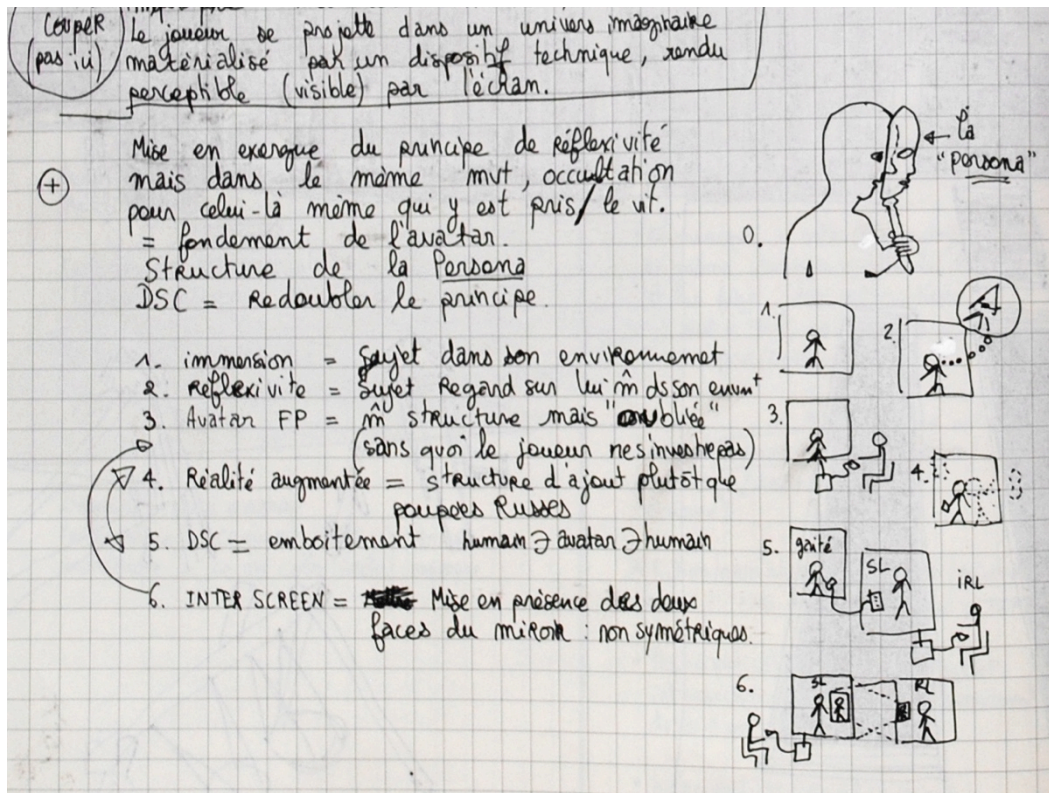 couper
(pas ici)
Le joueur se projette dans un univers imaginaire
matérialisé par un dispositif technique, rendu
perceptible (visible) par l'écran.
Mise en exergue du principe de réflexivité
+ mais dans le même mvt, occultation
pour celui-là même qui y est pris/le vit.
= fondement de l'avatar.
Structure de la Persona
DSC = Redoubler le principe.
1. immersion = Sujet dans son environnemet
2. Réflexivite = Sujet Regard sur lui m̂ ds son envnt
3. Avatar FP = m̂ structure mais "oubliée"
(sans quoi le joueur nes'investhepas)
4. Réalité augmentée = structure d'ajout plutôt que
poupées Russes
5. DSC = emboitement humain ∋ avatar ∋ humain
6. INTER SCREEN = Mise en présence des deux
faces du miroir : non symétriques.
0.
la
"persona"
1.
2.
3.
4.
5. gaité
SL
iRL
6.
SL
RL